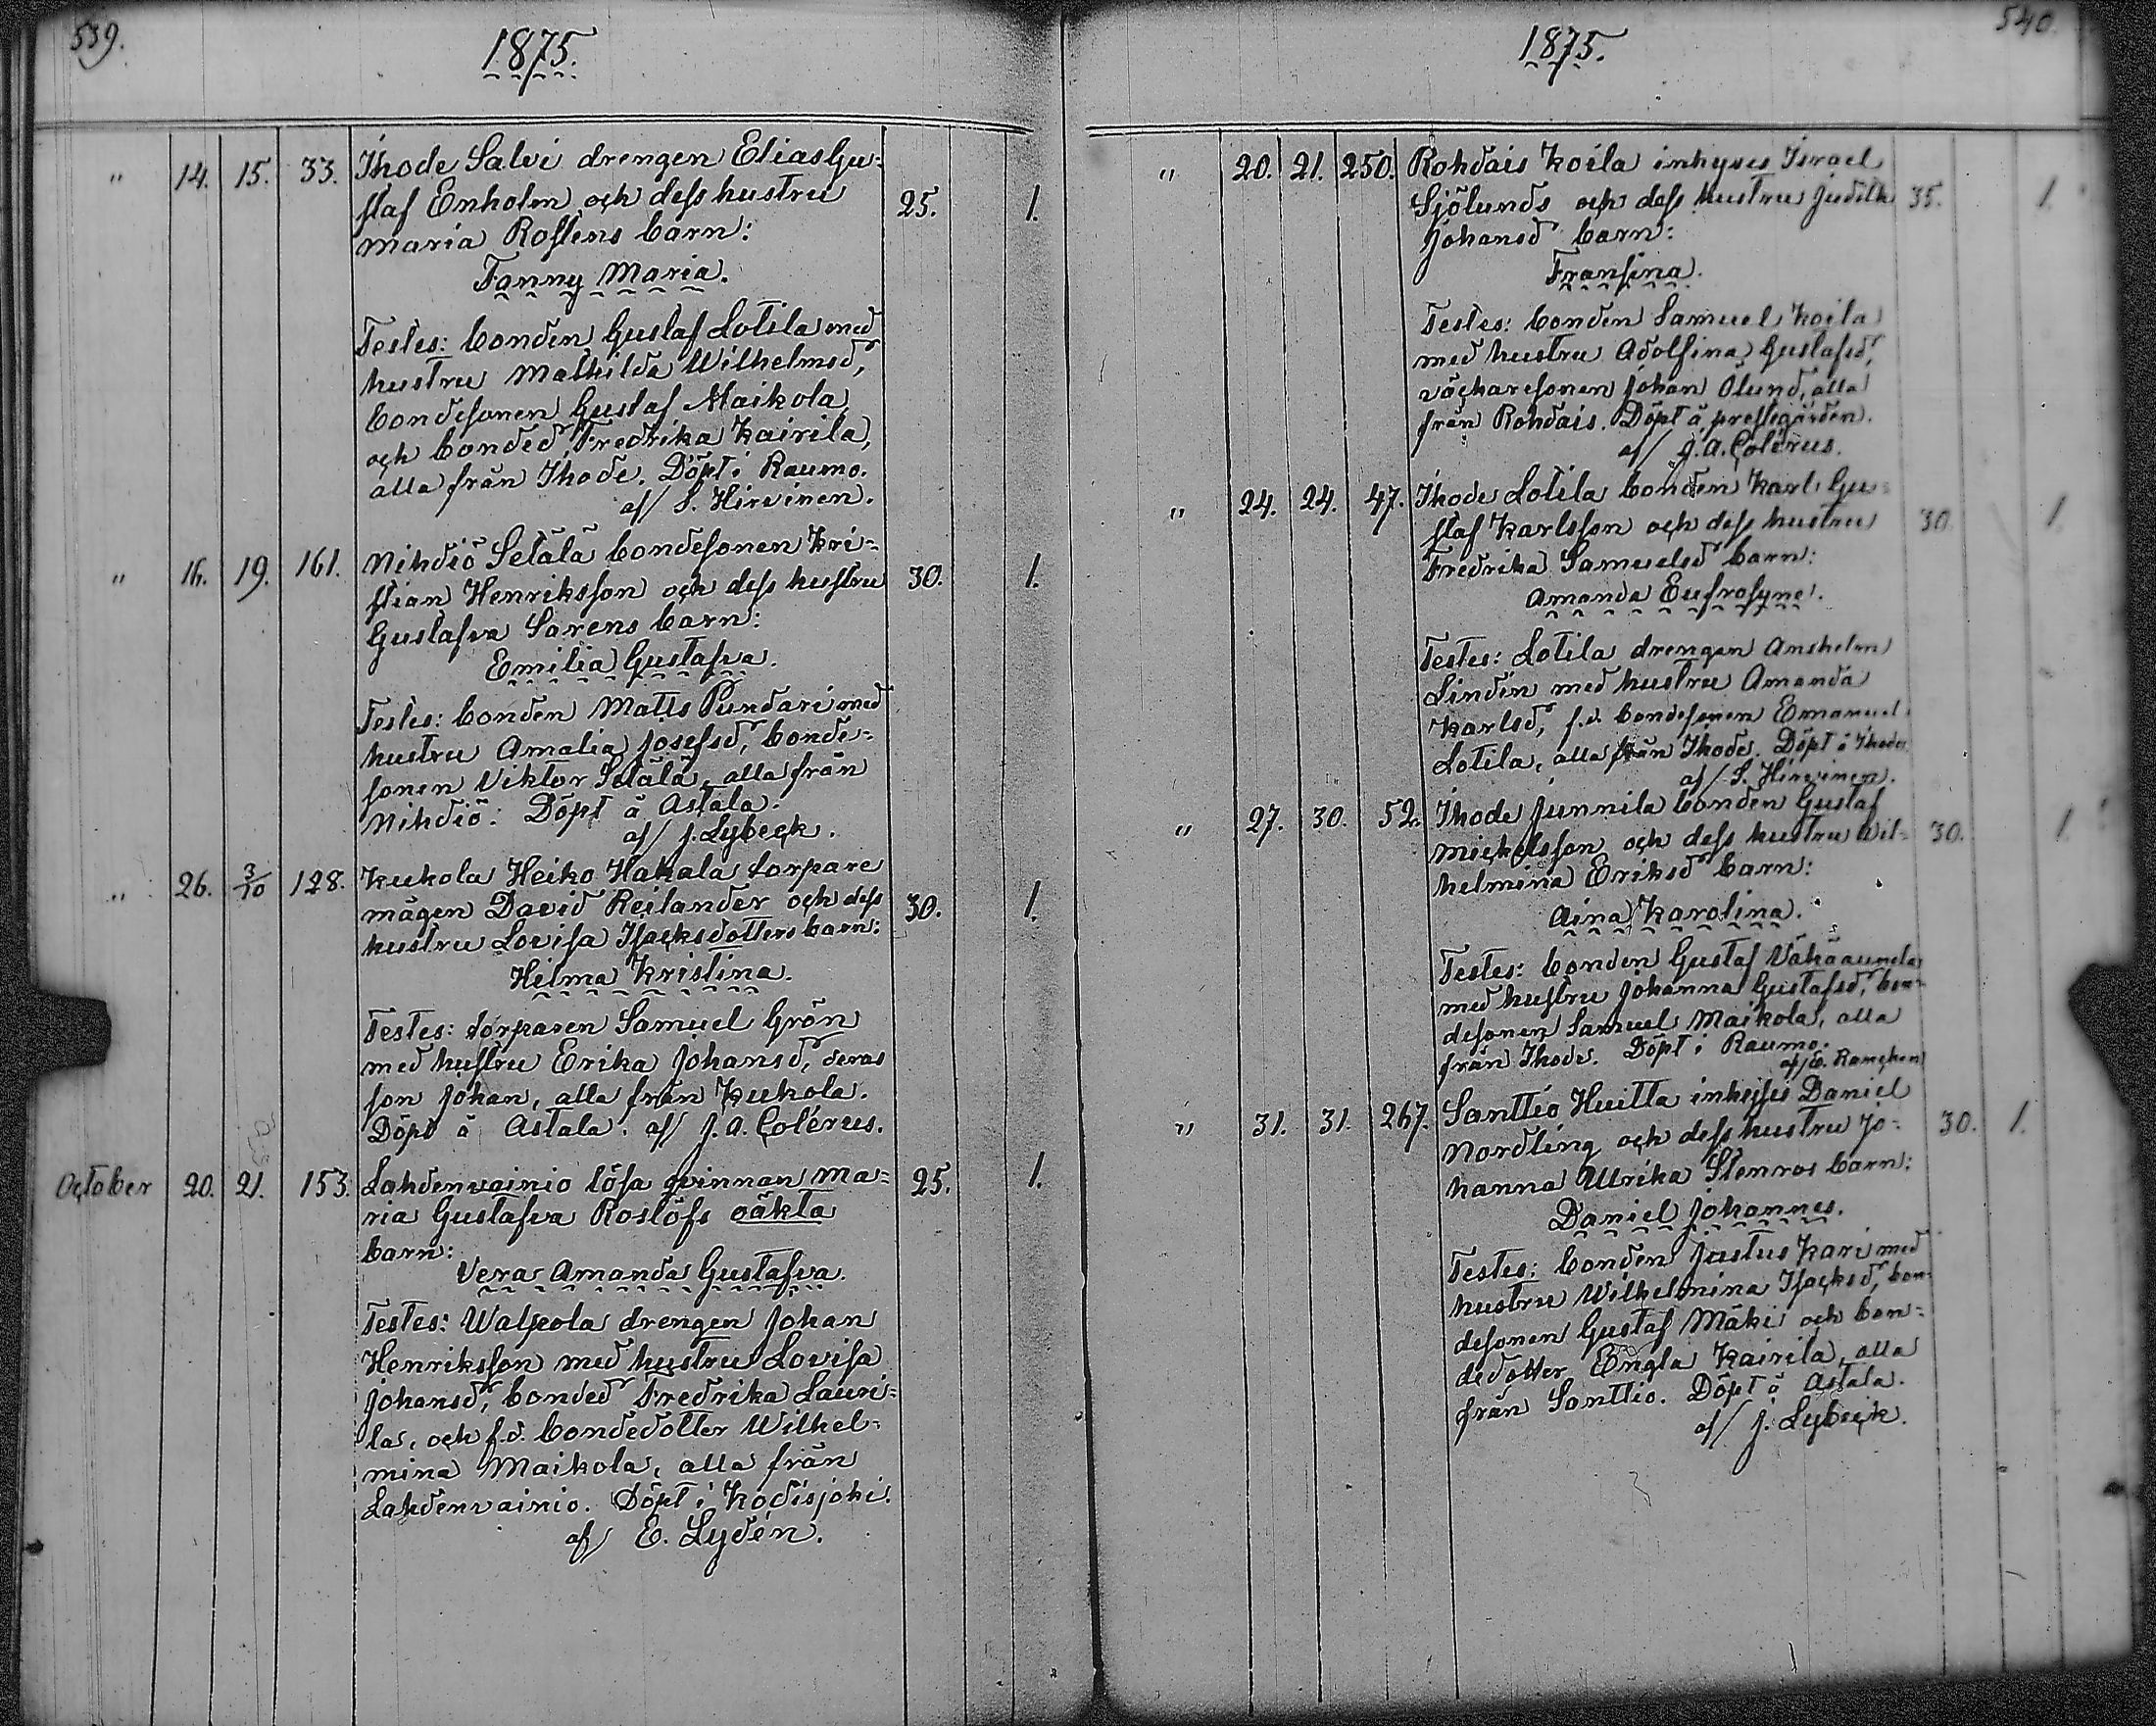 539.
1875.
" 14. 15. 33. Ihode Salvi drengen Elias Gu-
staf Enholm och dess hustru 25. 1.
Maria Rostens barn:
Fanny Maria.
Testes: bonden Gustaf Lotila med
hustru Mathilda Wilhelmsd,
bondesonen Gustaf Maikola,
och bonded, Fredrika Kairila,
alla från Ihode. Döpt i Raumo.
af/ S. Hirvinen.
" 16. 19. 161. Nihdiö Setälä bondesonen Kri-
stian Henriksson och dess hustru 30. 1.
Gustafva Sarens barn:
Emilia Gustafva.
Testes: bonden Matts Pundari med
hustru Amalia Josefsd, bonde-
sonen Viktor Setälä, alla från
Nihdiö. Döpt å Astala.
af/ J. Lybeck.
" 26. 3/10 128. Kukola Heiko Hakala torpare
mågen David Reilander och dess 30. 1.
hustru Lovisa Isacksdotters barn:
Hilma Kristina.
Testes: torparen Samuel Grön
med hustru Erika Johansd, deras
son Johan, alla från Kukola.
Döpt å Astala. af/ J. A. Colérus.
October 20. 21. 153. Lahdenvainio lösa qvinnan Ma- 25. 1.
ria Gustafva Roslöfs oäkta
barn:
Vera Amanda Gustafva.
Testes: Walpola drengen Johan
Henriksson med hustru Lovisa
Johansd, bonded Fredrika Lauri-
la, och f.d. bondedotter Wilhel-
mina Maikola, alla från
Lahdenvainio. Döpt i Kodisjoki.
af/ E. Lydén.
540.
1875.
" 20. 21. 250. Rohdais Koila inhyses Israel
Sjölunds och dess hustru Judith 35. 1.
Johansd barn:
Fransina.
Testes: bonden Samuel Koila
med hustru Adolfina Gustafsd,
väckaresonen Johan Ölund, alla
från Rohdais. Döpt å prestegården.
af/ J. A. Colérus.
" 24. 24. 47. Ihode Lotila bonden Karl Gu-
staf Karlsson och dess hustru 30. 1.
Fredrika Samuelsd barn:
Amanda Eufrosyne.
Testes: Lotila drengen Anshelm
Lindén med hustru Amanda
Karlsd, f.d. bondesonen Emanuel
Lotila, alla från Ihode. Döpt å Ihode
af/ S. Hirvinen.
" 27. 30. 52. Ihode Junnila bonden Gustaf
Mickelsson och dess hustru Wil- 30. 1.
helmina Eriksd barn:
Aina Karolina.
Testes: bonden Gustaf Vähäaunela
med hustru Johanna Gustafsd, bon-
desonen Samuel Maikola, alla
från Ihode. Döpt i Raumo.
af/ E. Ramchen
" 31. 31. 267. Santtio Huitta inhyses Daniel
Nordling och dess hustru Jo- 30. 1.
hanna Ulrika Stenros barn:
Daniel Johannes.
Testes: bonden Justus Kari med
hustru Wilhelmina Isacksd, bon-
desonen Gustaf Mäki och bon-
dedotter Engla Kairila, alla
från Santtio. Döpt å Astala.
af/ J. Lybeck.